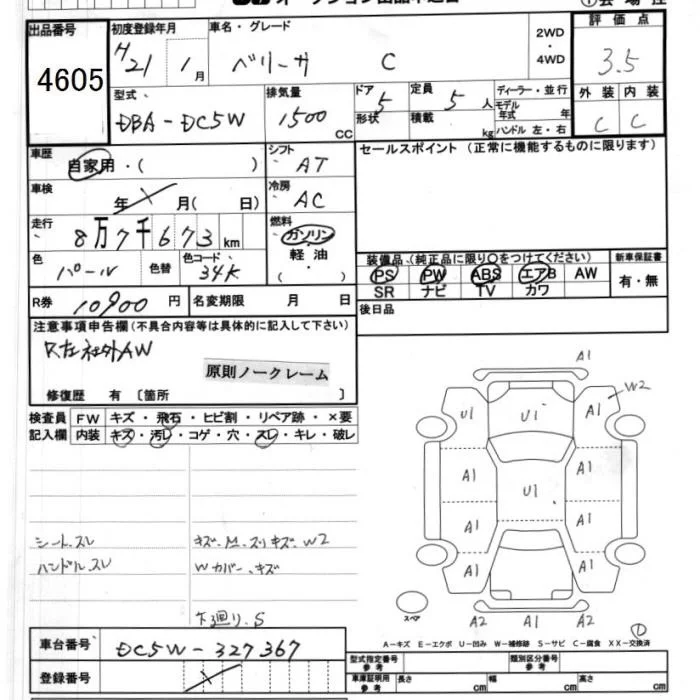 オークション出品申込書 ①会場控
出品番号 初度登録年月 車名・グレード 2WD・4WD 評価点
4605 H21 1月 ベリーサ C 3.5
型式 排気量 ドア 5 定員 5人 ディーラー・並行 外装 内装
DBA-DC5W 1500CC 形状 積載 kg モデル年式 年 C C
ハンドル 左・右
車歴 自家用・( ) シフト AT セールスポイント (正常に機能するものに限ります)
車検 年 月( 日) 冷房 AC
走行 8万7千673km 燃料 ガソリン
軽油
( ・ )
色 パール 色替 色コード 34K
装備品 (純正品に限り○をつけてください) 新車保証書
PS PW ABS エアB AW 有・無
SR ナビ TV カワ
R券 10900円 名変期限 月 日 後日品
注意事項申告欄(不具合内容等は具体的に記入して下さい)
社外AW
原則ノークレーム
修復歴 有 〔箇所 〕
検査員 FW キズ・飛石・ヒビ割・リペア跡・×要
記入欄 内装 キズ・汚レ・コゲ・穴・スレ・キレ・破レ
A1
W2
U1 U1 A1
A1 U1 A1
A1 A1
A1 A1
シートスレ キズ.M.スリキズ.W2
ハンドルスレ Wカバー、キズ
下廻り.S
スペア A2 A1 A2
①
A-キズ E-エクボ U-凹み W-補修跡 S-サビ C-腐食 XX-交換済
車台番号 DC5W-327367
登録番号
型式指定番号 参考 類別区分番号 参考
車庫証明用 参考 長さ cm 幅 cm 高さ cm